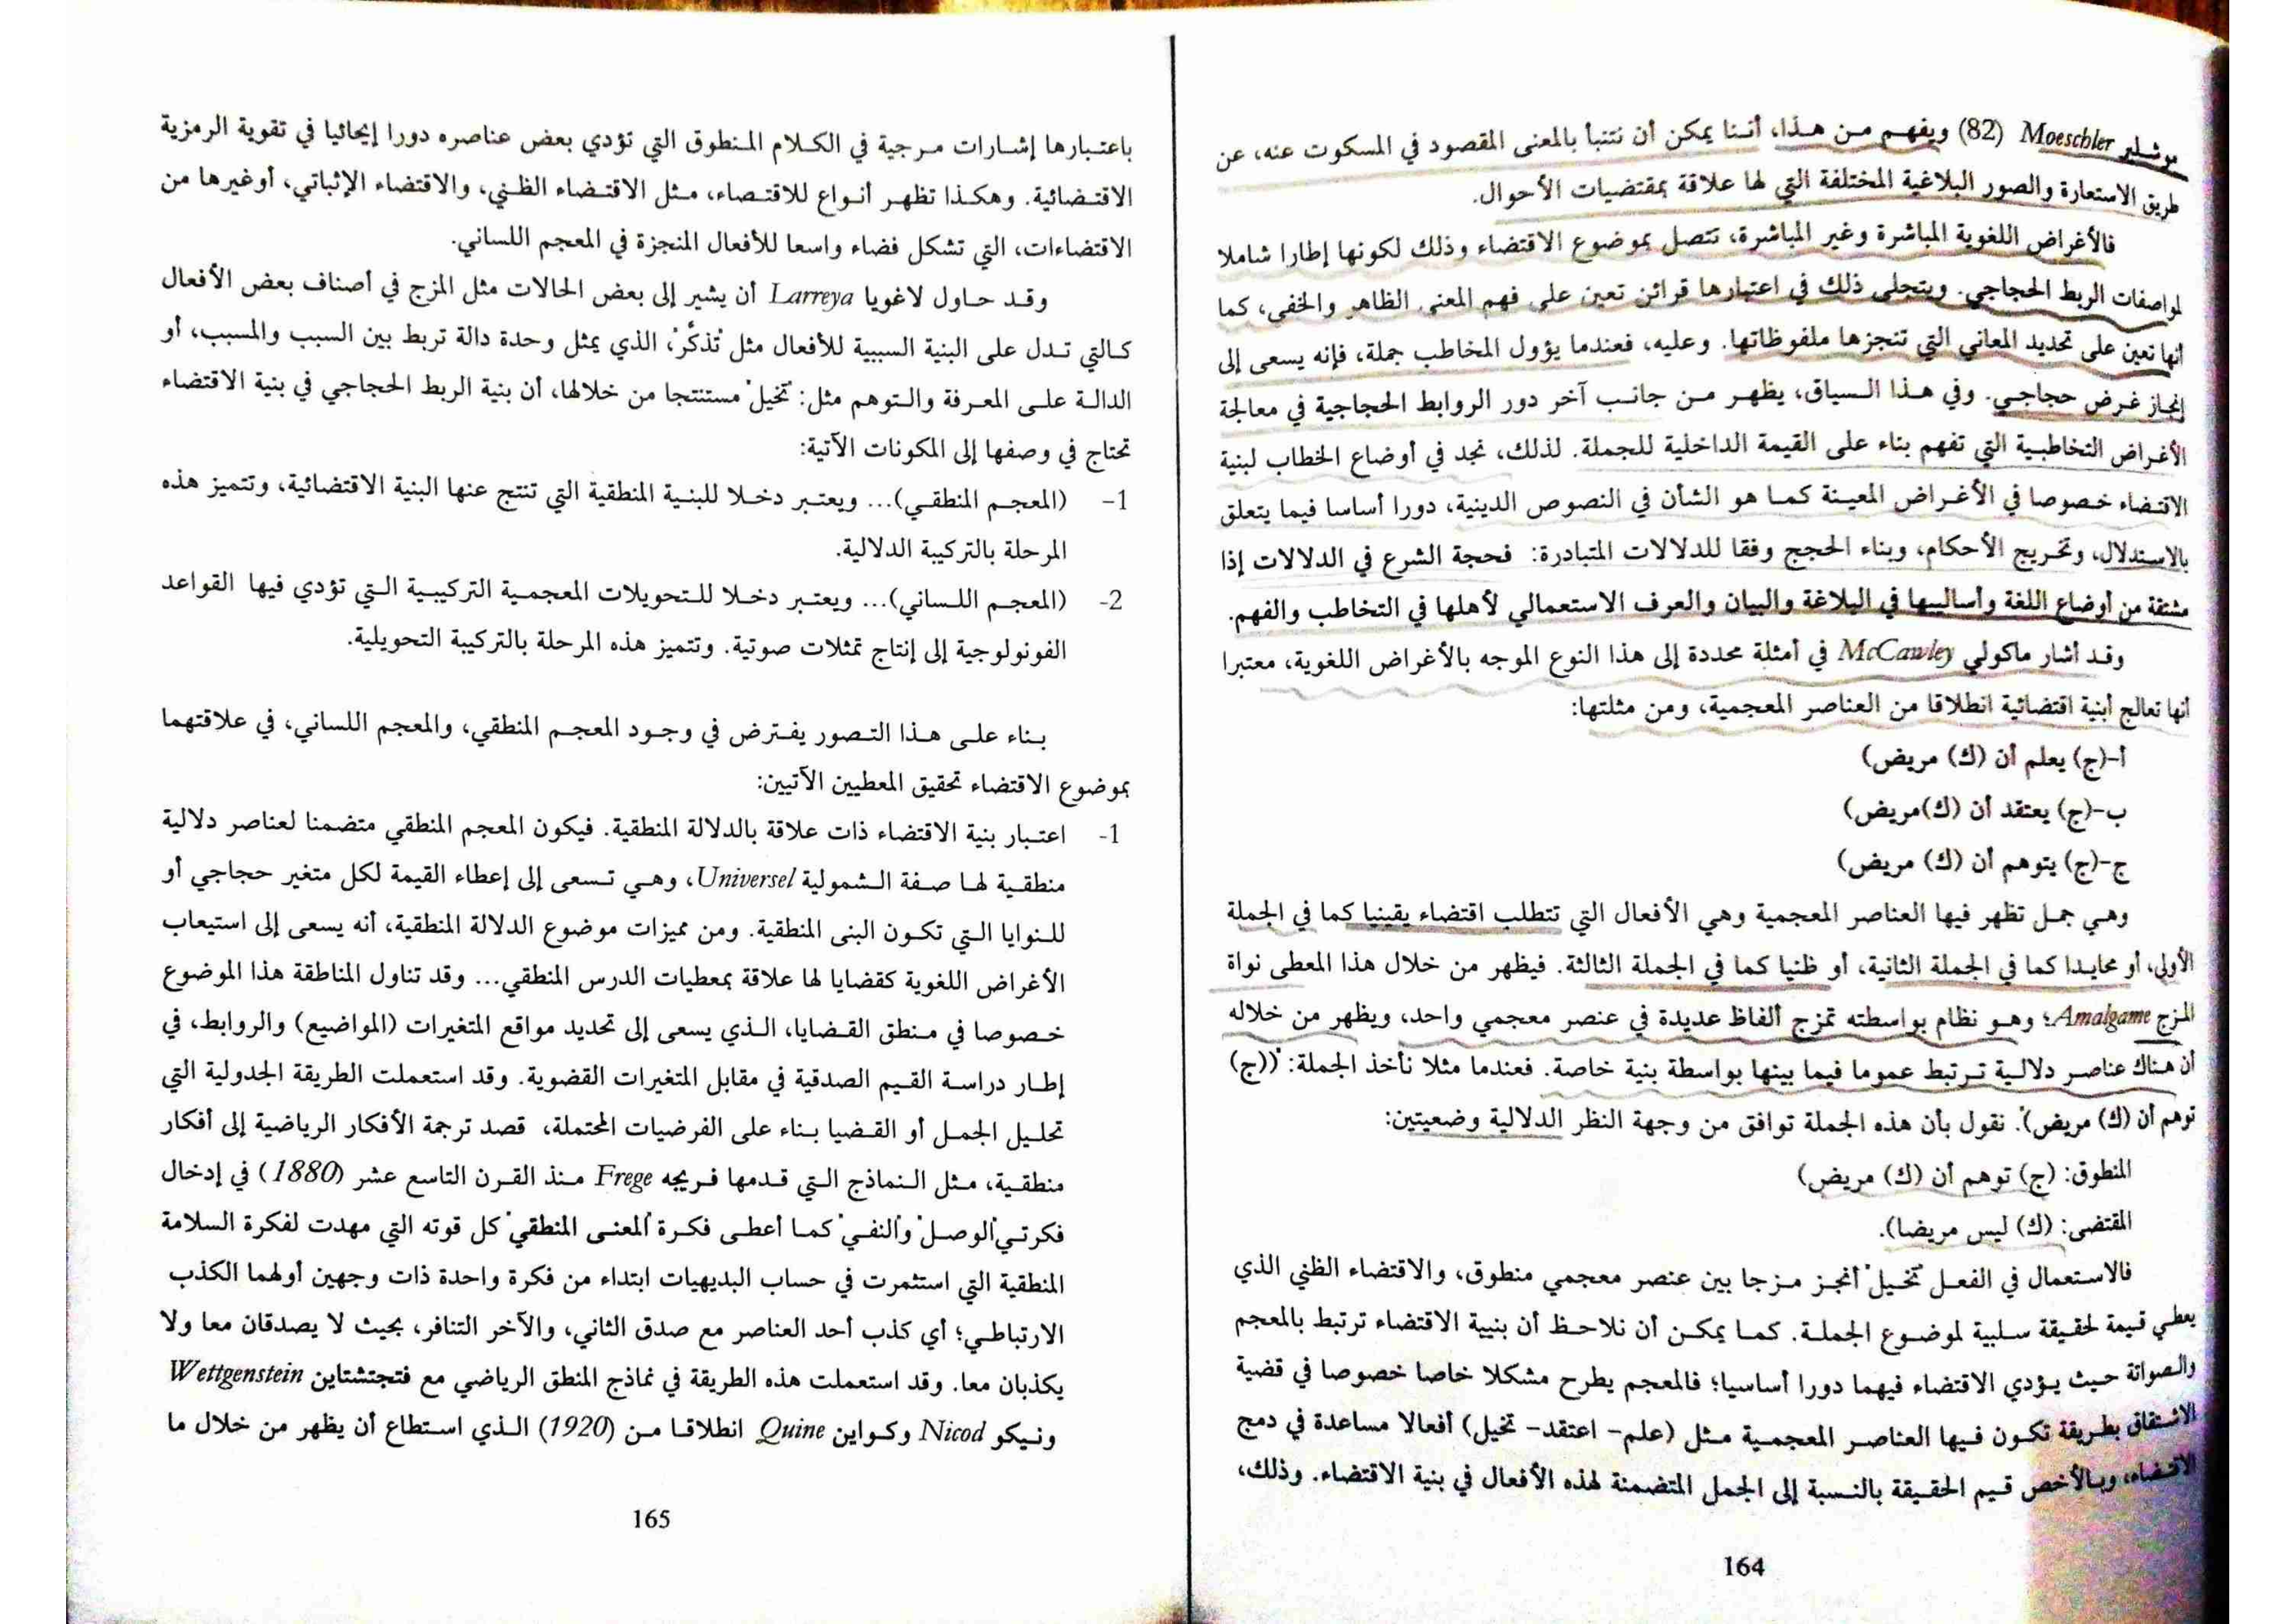 موشلير Moeschler (82) ويفهم من هذا، أننا يمكن أن نتنبأ بالمعنى المقصود في المسكوت عنه، عن
طريق الاستعارة والصور البلاغية المختلفة التي لها علاقة بمقتضيات الأحوال.
فالأغراض اللغوية المباشرة وغير المباشرة، تتصل بموضوع الاقتضاء وذلك لكونها إطارا شاملا
لمواصفات الربط الحجاجي. ويتجلى ذلك في اعتبارها قرائن تعين على فهم المعنى الظاهر والخفي، كما
أنها تعين على تحديد المعاني التي تنجزها ملفوظاتها. وعليه، فعندما يؤول المخاطب جملة، فإنه يسعى إلى
إنجاز غرض حجاجي. وفي هذا السياق، يظهر من جانب آخر دور الروابط الحجاجية في معالجة
الأغراض التخاطبية التي تفهم بناء على القيمة الداخلية للجملة. لذلك، نجد في أوضاع الخطاب لبنية
الاقتضاء خصوصا في الأغراض المعينة كما هو الشأن في النصوص الدينية، دورا أساسا فيما يتعلق
بالاستدلال، وتخريج الأحكام، وبناء الحجج وفقا للدلالات المتبادرة: فحجة الشرع في الدلالات إذا
مشتقة من أوضاع اللغة وأساليبها في البلاغة والبيان والعرف الاستعمالي لأهلها في التخاطب والفهم.
وقد أشار ماكولي McCawley في أمثلة محددة إلى هذا النوع الموجه بالأغراض اللغوية، معتبرا
أنها تعالج أبنية اقتضائية انطلاقا من العناصر المعجمية، ومن مثلتها:
أ-(ج) يعلم أن (ك) مريض)
ب-(ج) يعتقد أن (ك)مريض)
ج-(ج) يتوهم أن (ك) مريض)
وهي جمل تظهر فيها العناصر المعجمية وهي الأفعال التي تتطلب اقتضاء يقينيا كما في الجملة
الأولى، أو محايدا كما في الجملة الثانية، أو ظنيا كما في الجملة الثالثة. فيظهر من خلال هذا المعطى نواة
المزج Amalgame؛ وهو نظام بواسطته تمزج ألفاظ عديدة في عنصر معجمي واحد، ويظهر من خلاله
أن هناك عناصر دلالية ترتبط عموما فيما بينها بواسطة بنية خاصة. فعندما مثلا نأخذ الجملة: "((ج)
توهم أن (ك) مريض)". نقول بأن هذه الجملة توافق من وجهة النظر الدلالية وضعيتين:
المنطوق: (ج) توهم أن (ك) مريض)
المقتضى: (ك) ليس مريضا).
فالاستعمال في الفعل "تخيل" أنجز مزجا بين عنصر معجمي منطوق، والاقتضاء الظني الذي
يعطي قيمة لحقيقة سلبية لموضوع الجملة. كما يمكن أن نلاحظ أن بنيية الاقتضاء ترتبط بالمعجم
والصواتة حيث يؤدي الاقتضاء فيهما دورا أساسيا؛ فالمعجم يطرح مشكلا خاصا خصوصا في قضية
الاشتقاق بطريقة تكون فيها العناصر المعجمية مثل (علم- اعتقد- تخيل) أفعالا مساعدة في دمج
الاقتضاء، وبالأخص قيم الحقيقة بالنسبة إلى الجمل المتضمنة لهذه الأفعال في بنية الاقتضاء. وذلك،
164
باعتبارها إشارات مرجية في الكلام المنطوق التي تؤدي بعض عناصره دورا إيحائيا في تقوية الرمزية
الاقتضائية. وهكذا تظهر أنواع للاقتصاء، مثل الاقتضاء الظني، والاقتضاء الإثباتي، أوغيرها من
الاقتضاءات، التي تشكل فضاء واسعا للأفعال المنجزة في المعجم اللساني.
وقد حاول لاغويا Larreya أن يشير إلى بعض الحالات مثل المزج في أصناف بعض الأفعال
كالتي تدل على البنية السببية للأفعال مثل "تذكَّر"، الذي يمثل وحدة دالة تربط بين السبب والمسبب، أو
الدالة على المعرفة والتوهم مثل: "تخيل" مستنتجا من خلالها، أن بنية الربط الحجاجي في بنية الاقتضاء
تحتاج في وصفها إلى المكونات الآتية:
1- (المعجم المنطقي)... ويعتبر دخلا للبنية المنطقية التي تنتج عنها البنية الاقتضائية، وتتميز هذه
المرحلة بالتركيبة الدلالية.
2- (المعجم اللساني)... ويعتبر دخلا للتحويلات المعجمية التركيبية التي تؤدي فيها القواعد
الفونولوجية إلى إنتاج تمثلات صوتية. وتتميز هذه المرحلة بالتركيبة التحويلية.
بناء على هذا التصور يفترض في وجود المعجم المنطقي، والمعجم اللساني، في علاقتهما
بموضوع الاقتضاء تحقيق المعطيين الآتيين:
1- اعتبار بنية الاقتضاء ذات علاقة بالدلالة المنطقية. فيكون المعجم المنطقي متضمنا لعناصر دلالية
منطقية لها صفة الشمولية Universel، وهي تسعى إلى إعطاء القيمة لكل متغير حجاجي أو
للنوايا التي تكون البنى المنطقية. ومن مميزات موضوع الدلالة المنطقية، أنه يسعى إلى استيعاب
الأغراض اللغوية كقضايا لها علاقة بمعطيات الدرس المنطقي... وقد تناول المناطقة هذا الموضوع
خصوصا في منطق القضايا، الذي يسعى إلى تحديد مواقع المتغيرات (المواضيع) والروابط، في
إطار دراسة القيم الصدقية في مقابل المتغيرات القضوية. وقد استعملت الطريقة الجدولية التي
تحليل الجمل أو القضيا بناء على الفرضيات المحتملة، قصد ترجمة الأفكار الرياضية إلى أفكار
منطقية، مثل النماذج التي قدمها فريجه Frege منذ القرن التاسع عشر (1880) في إدخال
فكرتي "الوصل" و"النفي" كما أعطى فكرة "المعنى المنطقي" كل قوته التي مهدت لفكرة السلامة
المنطقية التي استثمرت في حساب البديهيات ابتداء من فكرة واحدة ذات وجهين أولهما الكذب
الارتباطي؛ أي كذب أحد العناصر مع صدق الثاني، والآخر التنافر، بحيث لا يصدقان معا ولا
يكذبان معا. وقد استعملت هذه الطريقة في نماذج المنطق الرياضي مع فتجتشتاين Wettgenstein
ونيكو Nicod وكواين Quine انطلاقا من (1920) الذي استطاع أن يظهر من خلال ما
165